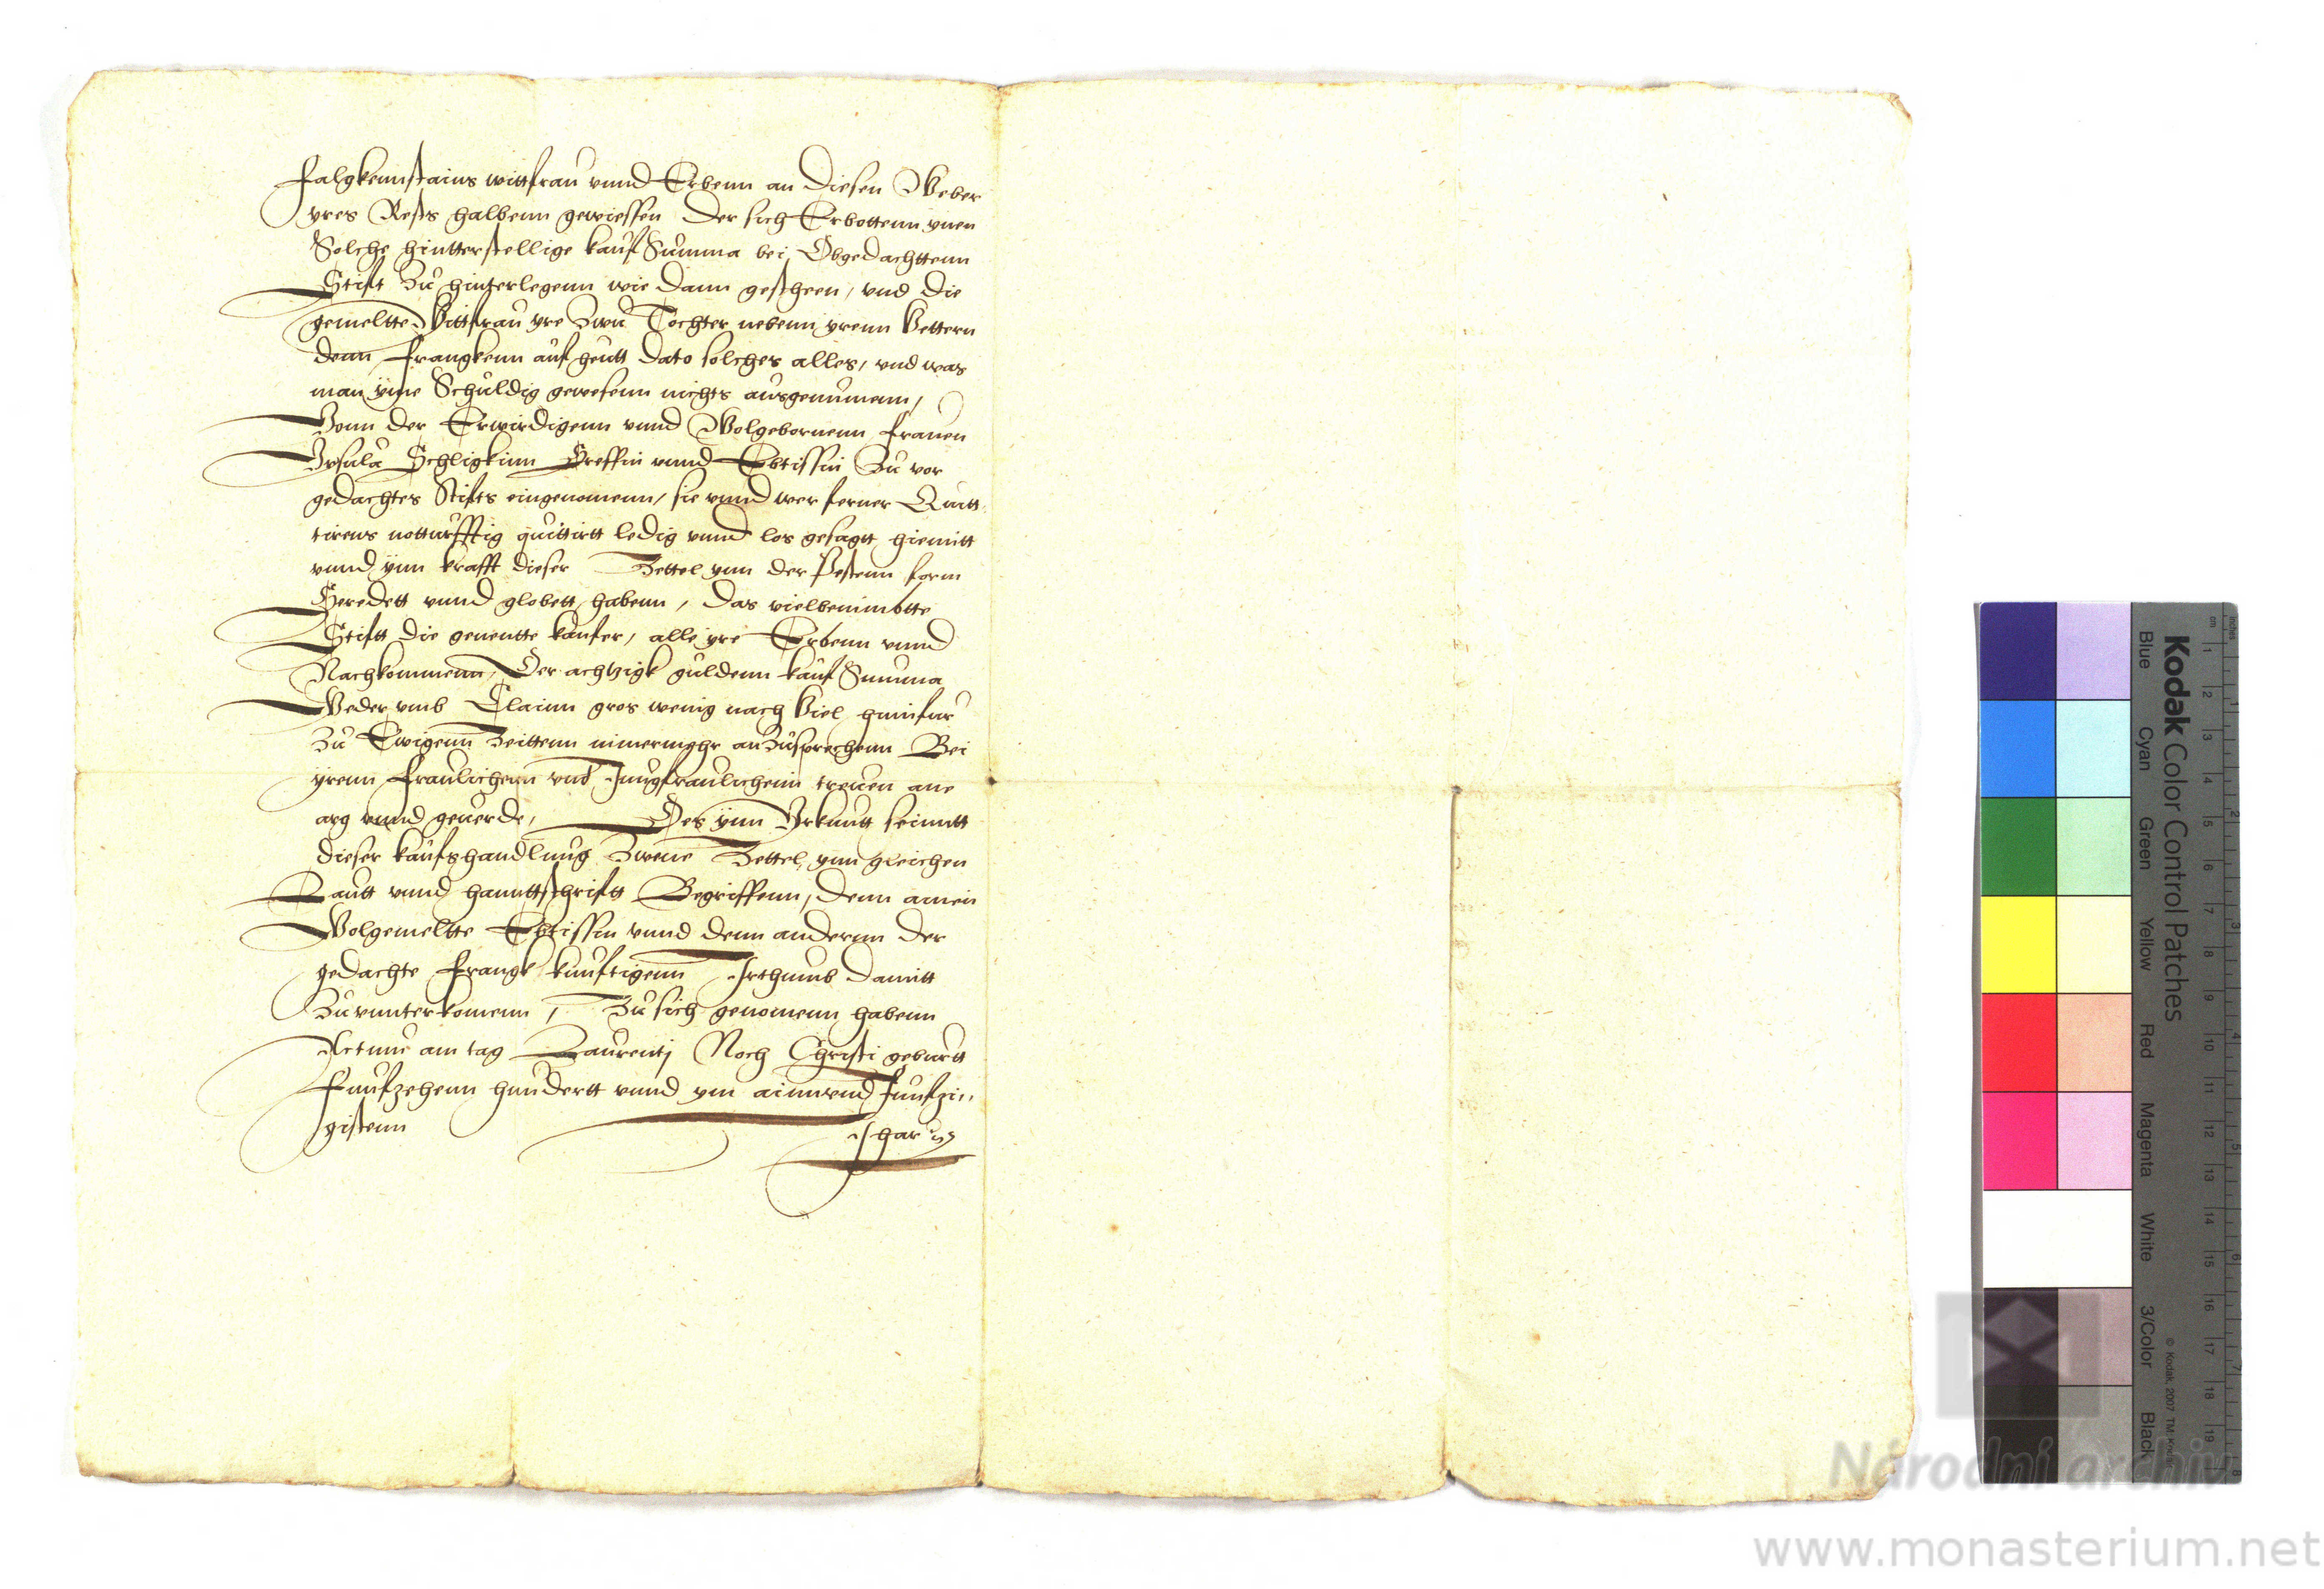 Falgkennstains wittfrau vnnd Erbenn an diesen Weber
yres Rests halbenn gewiessen der sich Erbottenn ynen
Solche hintterstellige kauf Summa bei Obgedachttenn
Stift Zu hinterlegenn wie dann gescheen, vnd die
gemeltte Wittfrau yre Zwu Tochter nebenn yrenn Vettern
denn Frangkenn auf heutt dato solches alles, vnd was
man yme Schuldig gewesenn nichts ausgenumenn,
Vonn der Erwirdigenn vnnd Wolgebornenn frauen
Vrsula Schligkinn Greffin vnnd Ebtissin Zu vor
gedachtes Stifts eingenomenn, sie vnnd wer ferner Quitt
tirens notturfftig quittirtt ledig vnnd los gesagtt hiemitt
vnnd ynn krafft dieser Zettel ynn der Pestenn form
Geredett vnnd globett habenn, das vielbenimbtte
Stiftt die genentte kaufer, alle yre Erbenn vnnd
Nachkommenn, Der achtzigk guldenn kauf Summa
Weder vmb Clainn gros wenig nach Viel hinnfur
Zu Ewigenn Zeittenn nimermehr anZusprechenn Bei
yrenn fraulichenn vnd Jungfraulichenn treuen ane
arg vnnd geuerde, Des ynn Vrkuntt seinntt
dieser kaufshandlung Zwene Zettel ynn gleichen
Lautt vnnd hanttschriftt Begriffenn, denn ainen
Wolgemeltte Ebtissin vnnd denn anderun der
gedachte Frangk kunftigenn Irthumb damitt
Zuuunterkomenn, Zu sich genomenn habenn
Actum am tag Laurentj Noch Christi geburtt
Funfzehenn hundertt vnnd ym ainnvnd funfzi„
gistenn